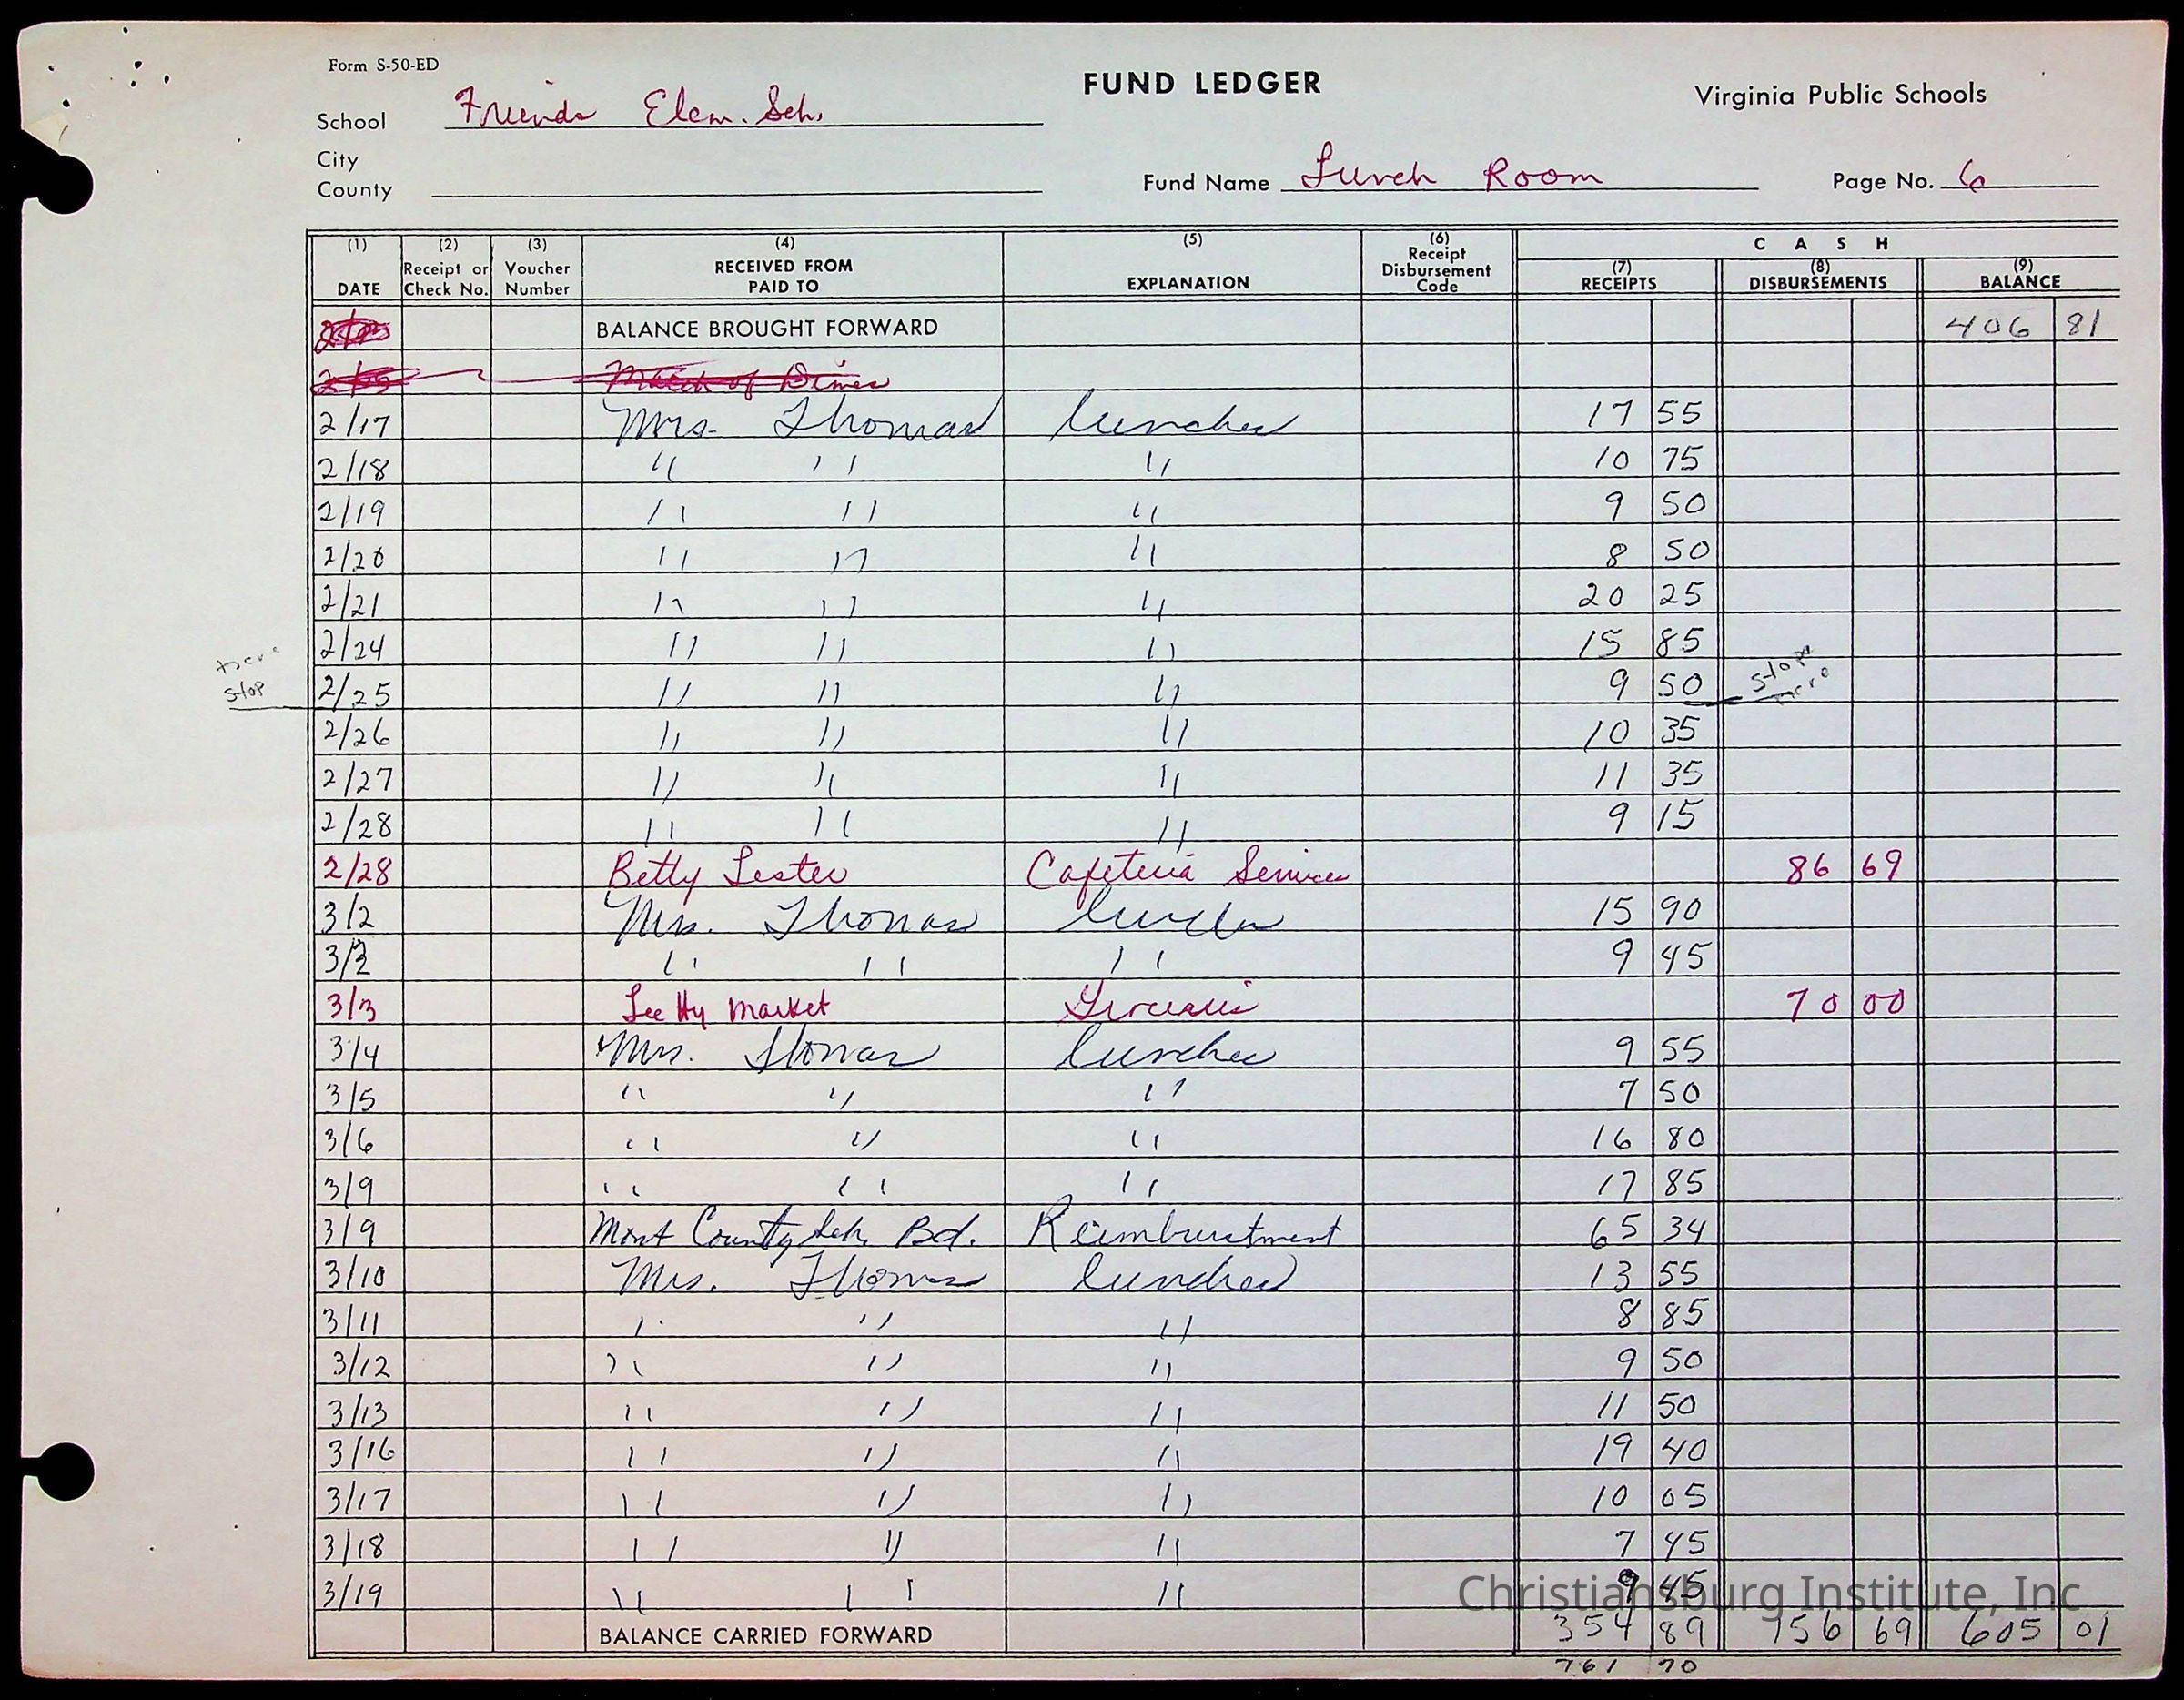 Form S-50-ED
FUND LEDGER
Virginia Public Schools
School Friends Elem. Sch.
City
County
Fund Name Lunch Room
Page No. 6
(1) DATE (2) Receipt or Check No. (3) Voucher Number (4) RECEIVED FROM PAID TO (5) EXPLANATION (6) Receipt Disbursement Code CASH (7) RECEIPTS (8) DISBURSEMENTS (9) BALANCE
BALANCE BROUGHT FORWARD 406 81
March of Dimes
2/17 Mrs. Thomas lunches 17 55
2/18 " " " 10 75
2/19 " " " 9 50
2/20 " " " 8 50
2/21 " " " 20 25
2/24 " " " 15 85
here stop 2/25 " " " 9 50 stop here
2/26 " " " 10 35
2/27 " " " 11 35
2/28 " " " 9 15
2/28 Betty Lester Cafeteria Services 86 69
3/2 Mrs. Thomas lunches 15 90
3/3 " " " 9 45
3/3 Lee Hy Market Groceries 70 00
3/4 Mrs. Thomas lunches 9 55
3/5 " " " 7 50
3/6 " " " 16 80
3/9 " " " 17 85
3/9 Mont County Sch. Bd. Reimburstment 65 34
3/10 Mrs. Thomas lunches 13 55
3/11 " " " 8 85
3/12 " " " 9 50
3/13 " " " 11 50
3/16 " " " 19 40
3/17 " " " 10 05
3/18 " " " 7 45
3/19 " " " 9 45
Christiansburg Institute, Inc
BALANCE CARRIED FORWARD 354 89 156 69 605 01
761 70